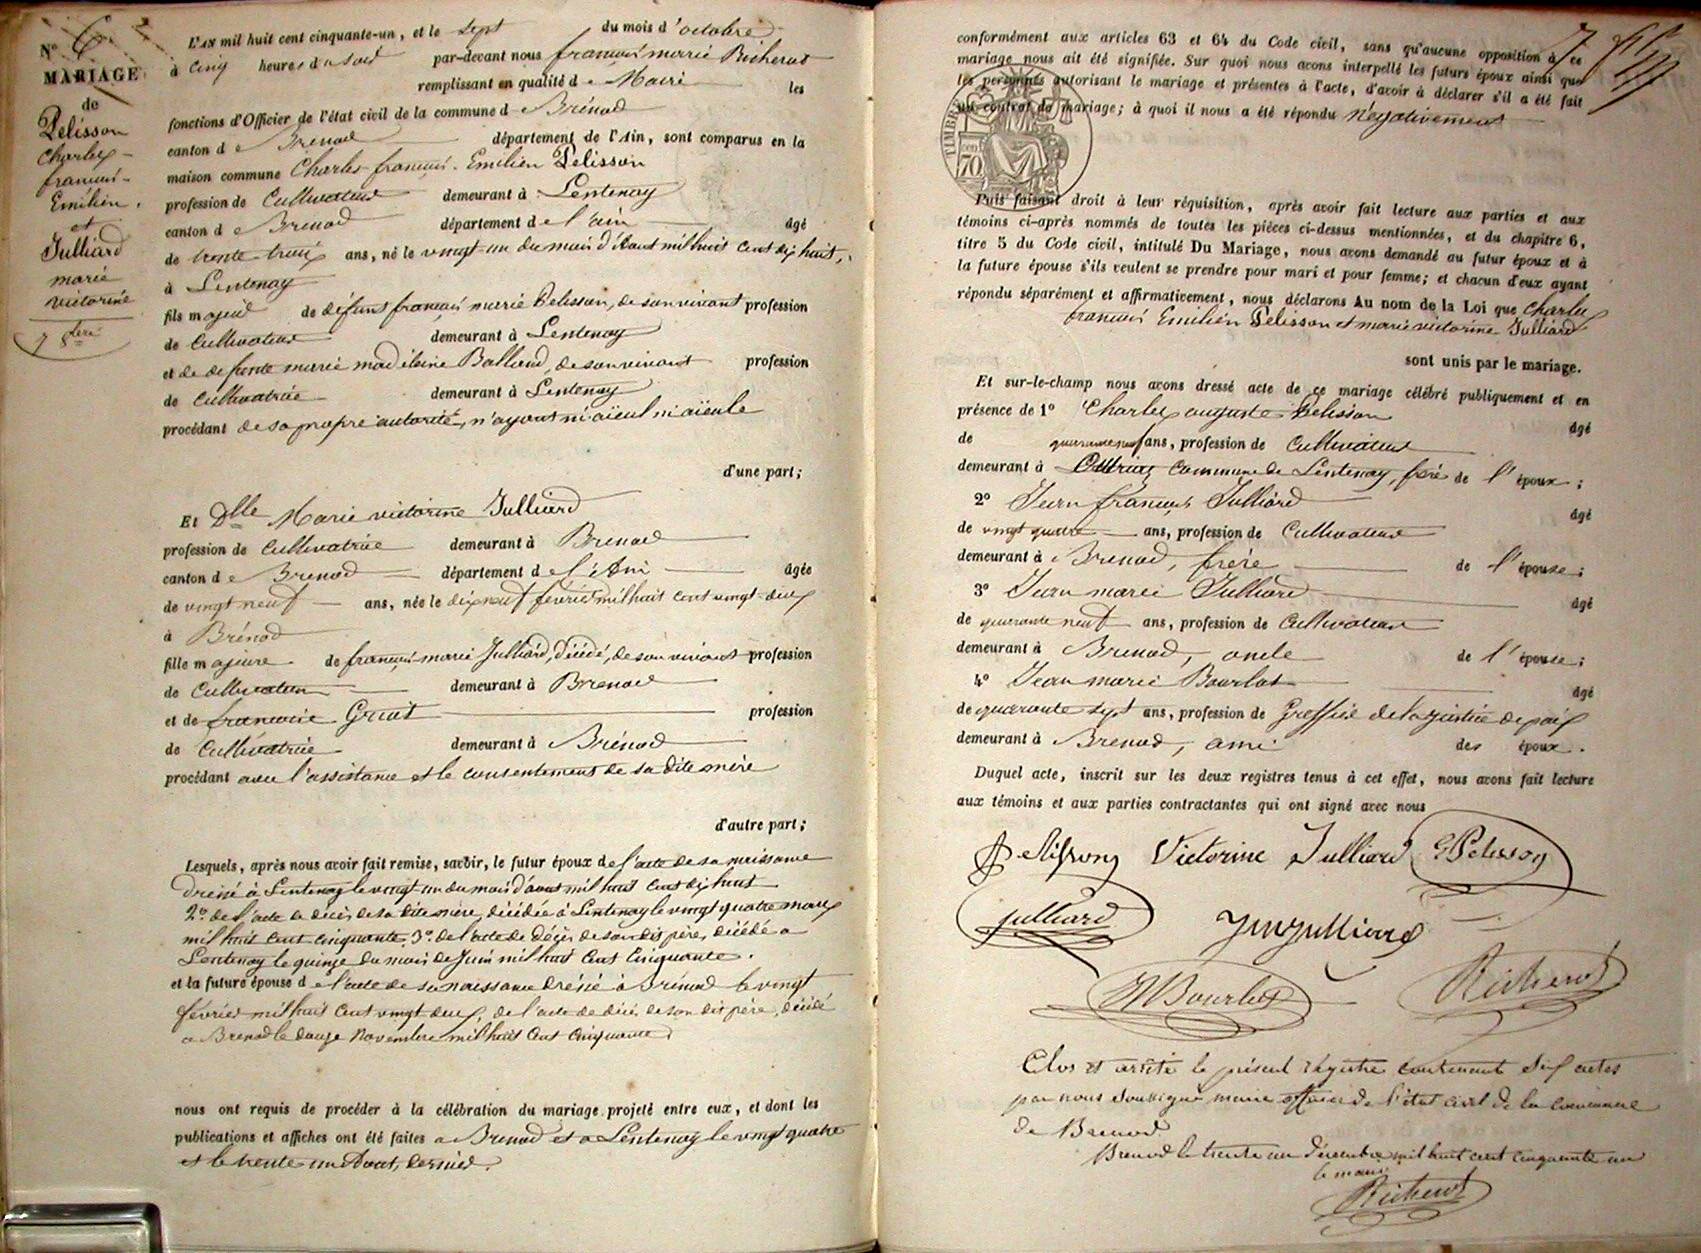 N.º 6
MARIAGE
de
Pelisson
Charles
françois
Emilien
et
Julliard
marie
victorine
7 8bre
L'AN mil huit cent cinquante-un, et le sept du mois d'octobre
à cinq heures du soir par-devant nous françois marie Richerot
remplissant en qualité de Maire les
fonctions d'Officier de l'état civil de la commune de Brénod
canton de Brenod département de l'Ain, sont comparus en la
maison commune Charles françois Emilien Pelisson
profession de Cultivateur demeurant à Lentenay
canton de Brenod département de l'ain âgé
de trente trois ans, né le vingt un du mois d'Aout mil huit cent dix huit,
à Lentenay
fils majeur de défunt françois marie Pelisson, de son vivant profession
de Cultivateur demeurant à Lentenay
et de defunte marie madelaine Balland, de son vivant profession
de Cultivatrice demeurant à Lentenay
procédant de sa propre autorité, n'ayant ni aïeul ni aïeule
d'une part;
Et Dlle Marie victorine Julliard
profession de Cultivatrice demeurant à Brenod
canton de Brenod département de l'Ain âgée
de vingt neuf ans, née le dix neuf février mil huit cent vingt-deux
à Brénod
fille majeure de françois-marie Julliard, décédé, de son vivant profession
de Cultivateur demeurant à Brenod
et de francoise Gruat profession
de Cultivatrice demeurant à Brénod
procédant avec l'assistance et le consentement de sa dite mère
d'autre part;
Lesquels, après nous avoir fait remise, savoir, le futur époux de l'acte de sa naissance
dressé à Lentenay le vingt un du mois d'aout mil huit cent dix huit
2.º de l'acte de décès de sa dite mère, décédée à Lentenay le vingt quatre mars
mil huit cent cinquante, 3.º de l'acte de décès de son dit père, décédé a
Lentenay le quinze du mois de Juin mil huit cent Cinquante.
et la future épouse de l'acte de sa naissance dressé à Brénod le vingt
février mil huit cent vingt deux, de l'acte de décès de son dit père, décédé
a Brenod le douze Novembre mil huit cent cinquante
nous ont requis de procéder à la célébration du mariage projeté entre eux, et dont les
publications et affiches ont été faites a Brenod et a Lentenay le vingt quatre
et le trente un Aout, dernier.
7
conformément aux articles 63 et 64 du Code civil, sans qu'aucune opposition à ce
mariage nous ait été signifiée. Sur quoi nous avons interpellé les futurs époux ainsi que
les personnes autorisant le mariage et présentes à l'acte, d'avoir à déclarer s'il a été fait
un contrat de mariage; à quoi il nous a été répondu Négativement
TIMBRE
70
Puis faisant droit à leur réquisition, après avoir fait lecture aux parties et aux
témoins ci-après nommés de toutes les pièces ci-dessus mentionnées, et du chapitre 6,
titre 5 du Code civil, intitulé Du Mariage, nous avons demandé au futur époux et à
la future épouse s'ils veulent se prendre pour mari et pour femme; et chacun d'eux ayant
répondu séparément et affirmativement, nous déclarons Au nom de la Loi que Charles
françois Emilien Pelisson et marie victorine Julliard
sont unis par le mariage.
Et sur-le-champ nous avons dressé acte de ce mariage célébré publiquement et en
présence de 1º Charles auguste Pelisson âgé
de quarante neuf ans, profession de Cultivateur
demeurant à commune de Lentenay, frère de l'époux;
2º Jean françois Julliard âgé
de vingt quatre ans, profession de Cultivateur
demeurant à Brenod, frère de l'épouse;
3º Jean marie Julliard âgé
de quarante neuf ans, profession de Cultivateur
demeurant à Brenod, oncle de l'épouse;
4º Jean marie Bourlot âgé
de quarante sept ans, profession de Greffier de la justice de paix
demeurant à Brenod, ami des époux.
Duquel acte, inscrit sur les deux registres tenus à cet effet, nous avons fait lecture
aux témoins et aux parties contractantes qui ont signé avec nous
Pelisson Victorine Julliard E Pelisson
julliard Julliard
JM Bourlot Richerot
Clos et arrêté le présent régistre contenant six actes
par nous soussigné maire officier de l'état civil de la commune
de Brenod.
Brenod le trente un décembre mil huit cent cinquante un
le maire
Richerot